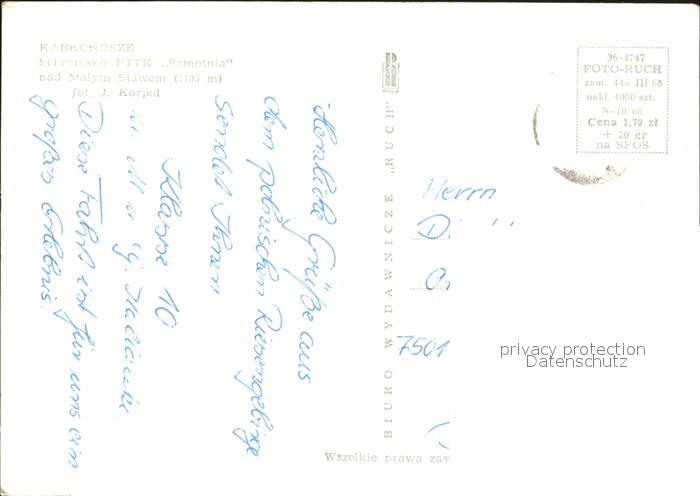 KARKONOSZE
Schronisko PTTK „Samotnia"
nad Małym Stawem (1195 m)
fot. J. Korpal
Herzliche Grüße aus
dem polnischen Riesengebirge
sendet Ihnen
Klasse 10
u. M. u. G.
Diese Fahrt ist für uns ein
großes Erlebnis.
BIURO WYDAWNICZE „RUCH"
36-4747
FOTO-RUCH
zam. 446 III 68
nakl. 4000 szt.
N-10 66
Cena 1,70 zł
+ 20 gr
na SFOS
Herrn
D
O
7501
privacy protection
Datenschutz
Wszelkie prawa zas